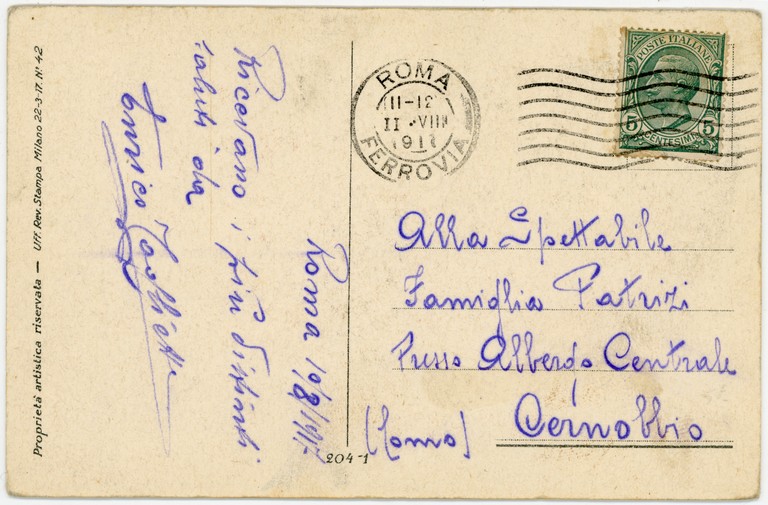 Proprietà artistica riservata — Uff. Rev. Stampa Milano 22-3-17. N° 42
Roma 10/8/1917
Ricevano i più distinti
saluti da
Enrico
204-1
ROMA
11-12
11 VIII
1917
FERROVIA
POSTE ITALIANE
5 CENTESIMI 5
Alla Spettabile
Famiglia Patrizi
Presso Albergo Centrale
Cernobbio
(Como)